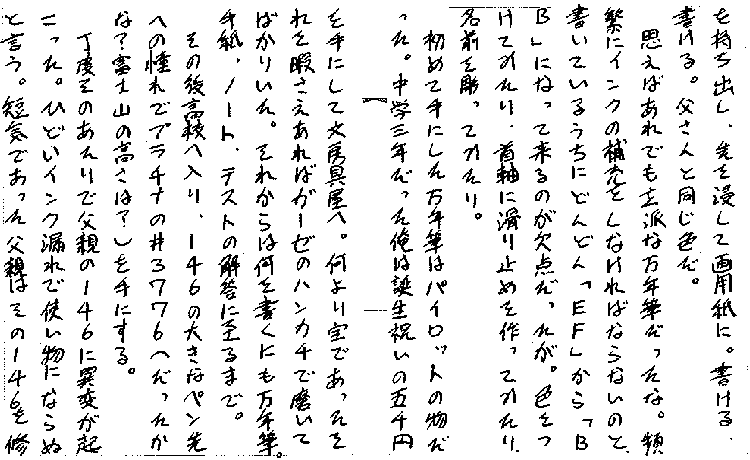 を持ち出し、先を浸して画用紙に。書ける、
書ける。父さんと同じ色だ。
思えばあれでも立派な万年筆だったな。頻
繁にインクの補充をしなければならないのと、
書いているうちにどんどん「EF」から「B
B」になって来るのが欠点だったが。色をつ
けてみたり、首軸に滑り止めを作ってみたり、
名前を彫ってみたり。
初めて手にした万年筆はパイロットの物だ
った。中学三年だった俺は誕生祝いの五千円
を手にして文房具屋へ。何より宝であったそ
れを暇さえあればガーゼのハンカチで磨いて
ばかりいた。それからは何を書くにも万年筆。
手紙、ノート、テストの解答に至るまで。
その後高校へ入り、146の大きなペン先
への憧れでプラチナの#3776(だったか
な?富士山の高さは?)を手にする。
丁度そのあたりで父親の146に異変が起
こった。ひどいインク漏れで使い物にならぬ
と言う。短気であった父親はその146を修